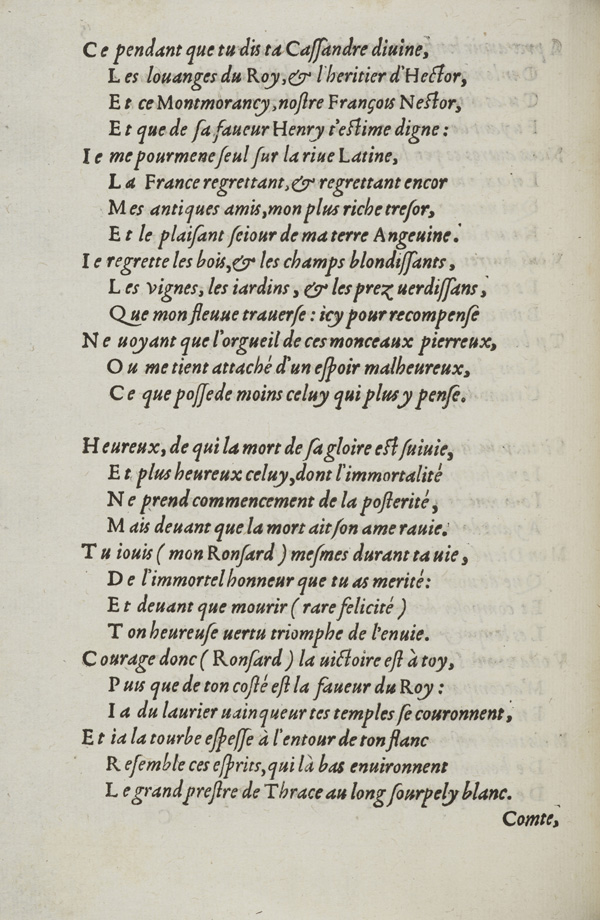 Ce pendant que tu dis ta Caſſandre diuine,
Les louanges du Roy, & l'heritier d'Hector,
Et ce Montmorancy, noſtre François Neſtor,
Et que de ſa faueur Henry t'eſtime digne:
Ie me pourmene ſeul ſur la riue Latine,
La France regrettant, & regrettant encor
Mes antiques amis, mon plus riche treſor,
Et le plaiſant ſeiour de ma terre Angeuine.
Ie regrette les bois, & les champs blondiſſants,
Les vignes, les iardins, & les prez uerdiſſans,
Que mon fleuue trauerſe: icy pour recompenſe
Ne uoyant que l'orgueil de ces monceaux pierreux,
Ou me tient attaché d'un eſpoir malheureux,
Ce que poſſede moins celuy qui plus y penſe.
Heureux, de qui la mort de ſa gloire eſt ſuiuie,
Et plus heureux celuy, dont l'immortalité
Ne prend commencement de la poſterité,
Mais deuant que la mort ait ſon ame rauie.
Tu iouis (mon Ronſard) meſmes durant ta uie,
De l'immortel honneur que tu as merité:
Et deuant que mourir (rare felicité)
Ton heureuſe uertu triomphe de l'enuie.
Courage donc (Ronſard) la uictoire eſt à toy,
Puis que de ton coſté eſt la faueur du Roy:
Ia du laurier uainqueur tes temples ſe couronnent,
Et ia la tourbe eſpeſſe à l'entour de ton flanc
Reſemble ces eſprits, qui là bas enuironnent
Le grand preſtre de Thrace au long ſourpely blanc.
Comte,